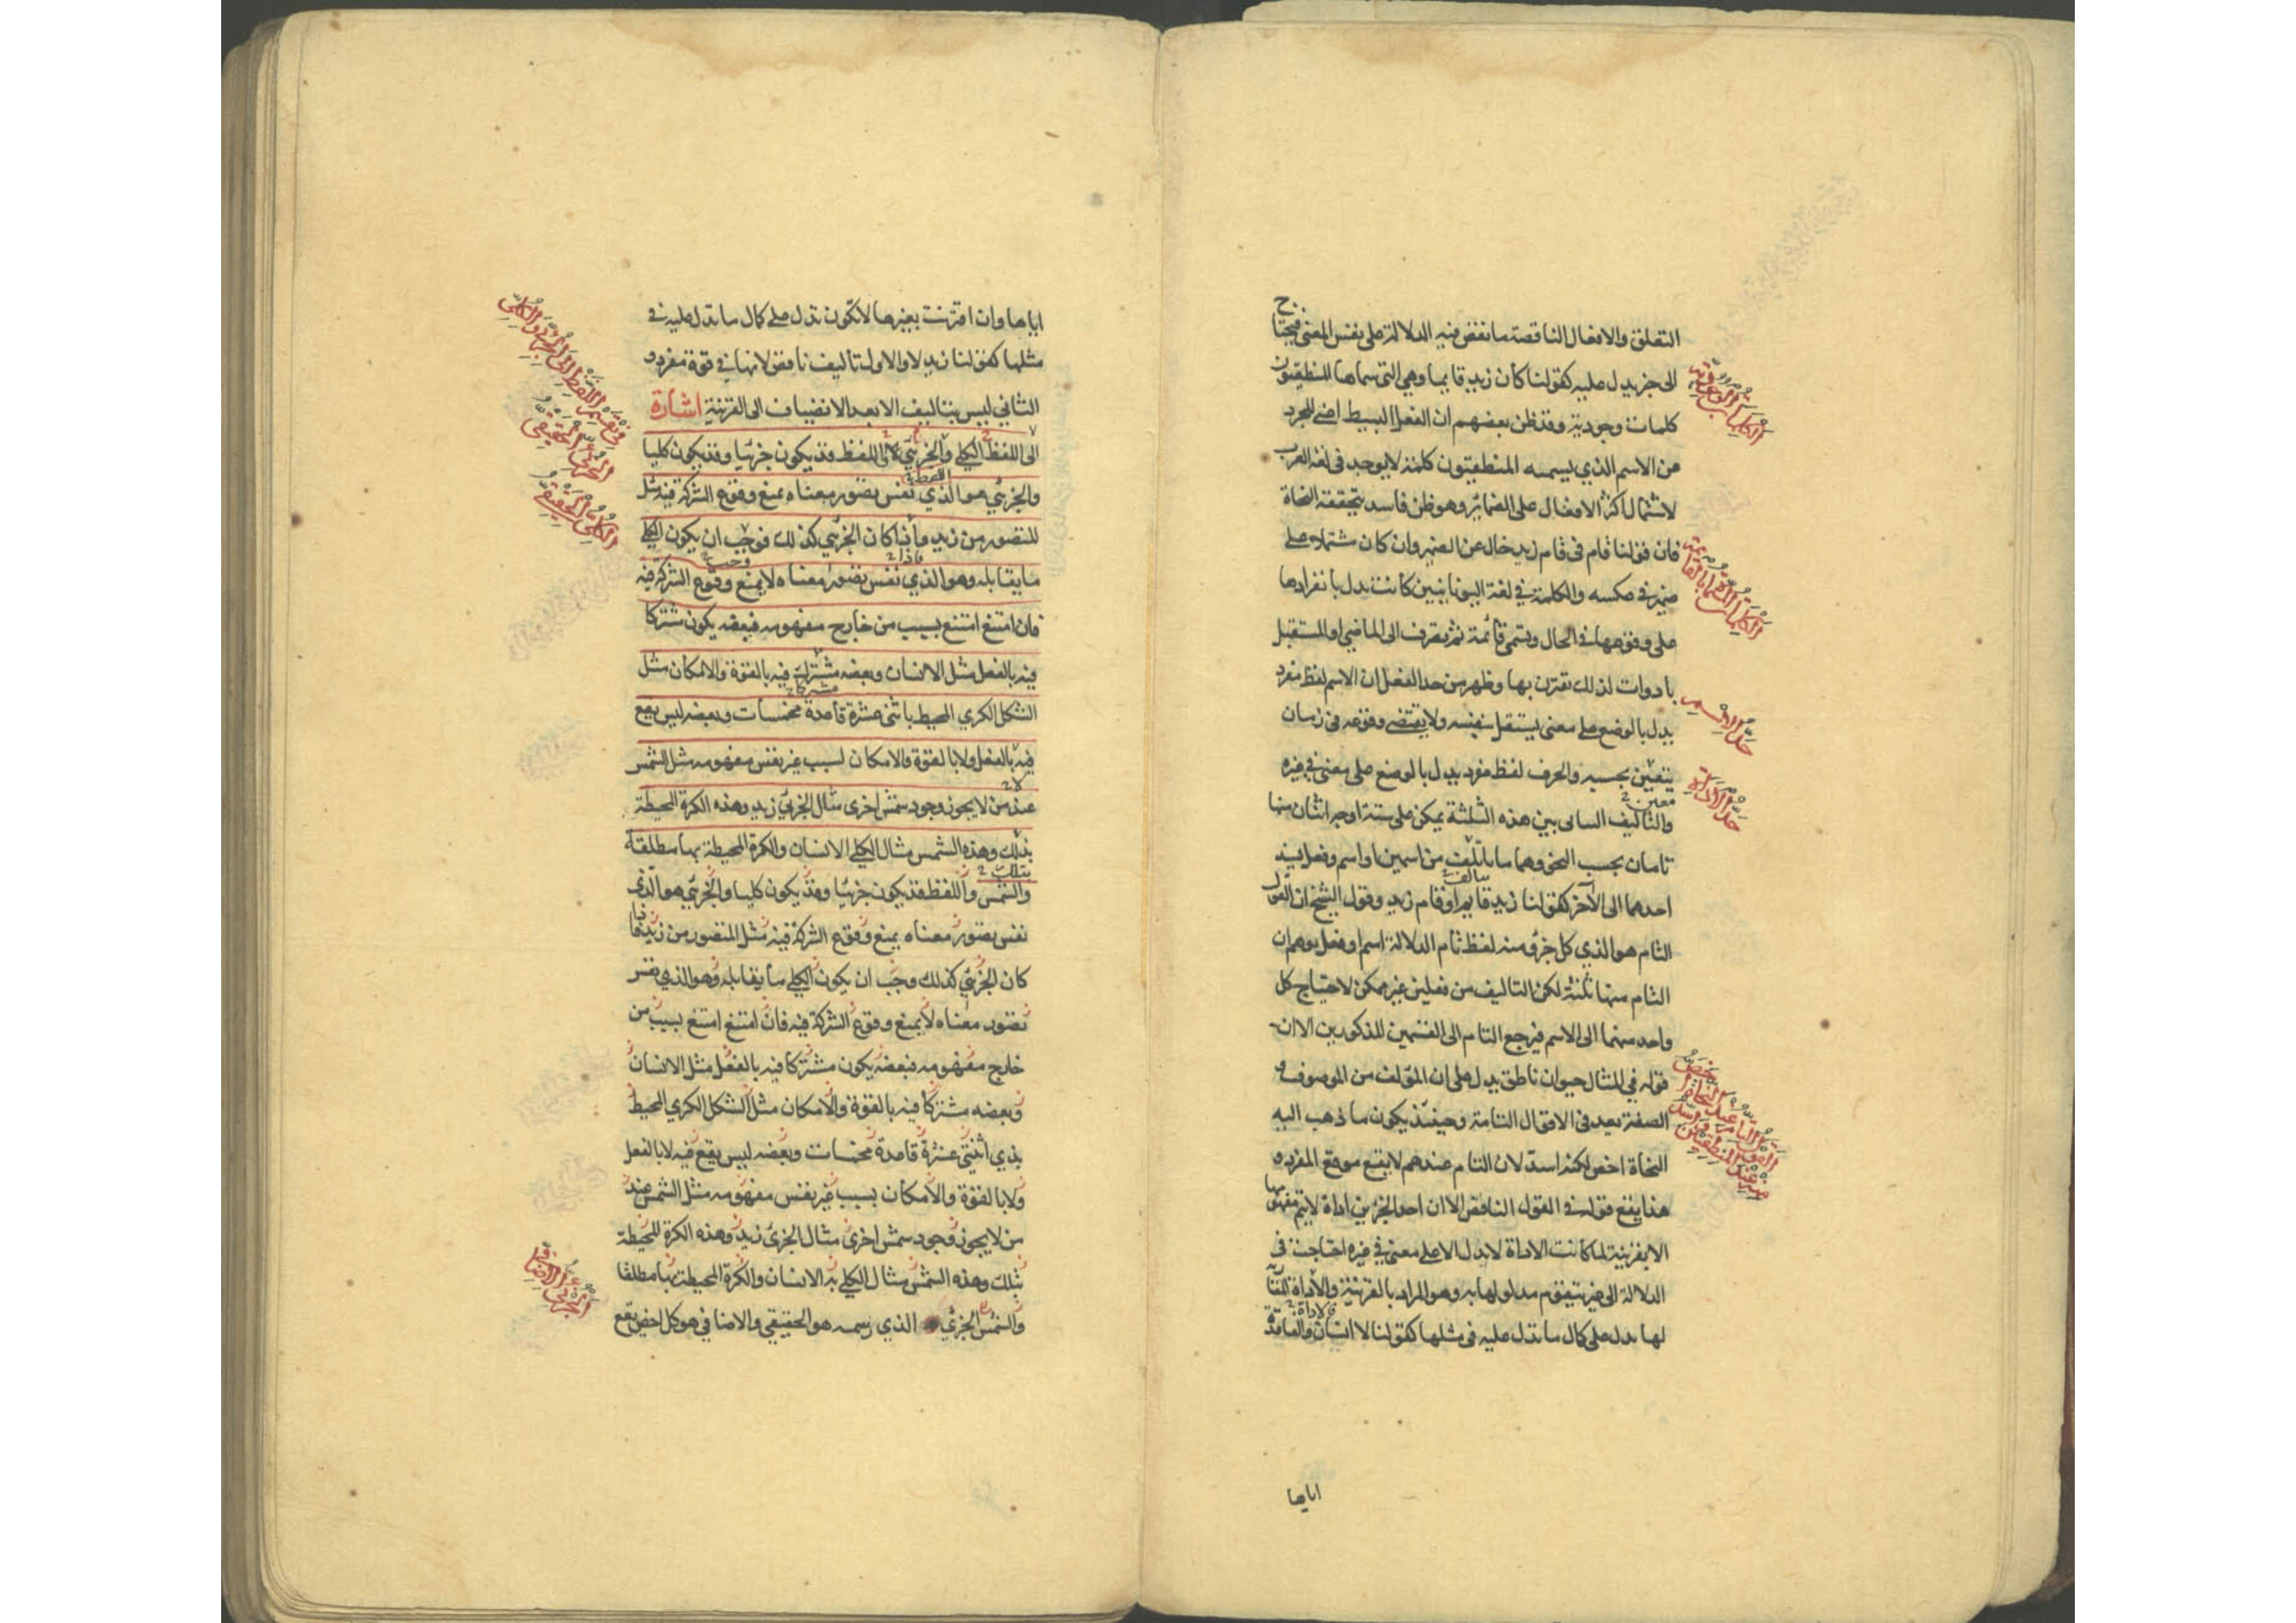 التعلق والافعال الناقصة ما نقص فيه الدلالة على نفس المعنى فيحتاج
الى جزء يدل عليه كقولنا كان زيد قايما وهي التي سماها المنطقيون
كلمات وجودية وقد ظن بعضهم ان الفعل البسيط اعني المجرد
عن الاسم الذي يسميه المنطقيون كلمة لا يوجد في لغة العرب
لاشتمال اكثر الافعال على الضمائر وهو ظن فاسد يتحققه النحاة
فان قولنا قام في قام زيد خال عن الضمير وان كان مشتملا على
ضمير في عكسه والكلمة في لغة اليونانيين كانت تدل بانفرادها
على وقوعها في الحال وتسمى قائمة ثم يصرف الى الماضي او المستقبل
بادوات لذلك تقترن بها وظهر من حد الفعل ان الاسم لفظ مفرد
يدل بالوضع على معنى يستقل بنفسه ولا يقتضي وقوعه في زمان
يتعين بحسبه والحرف لفظ مفرد يدل بالوضع على معنى في غيره
معين
والتاليف الثنائي بين هذه الثلثة يمكن على ستة اوجه اثنان منها
تامان بحسب النحو وهما ما يتألف من اسمين او اسم وفعل يسند
يتالف
احدهما الى الآخر كقولنا زيد قايم او قام زيد وقول الشيخ ان القول
التام هو الذي كل جزء منه لفظ تام الدلالة اسم او فعل يوهم ان
التام منها ثلثة لكن التاليف من فعلين غير ممكن لاحتياج كل
واحد منهما الى الاسم فيرجع التام الى القسمين المذكورين الا ان
قوله في المثال حيوان ناطق يدل على ان المؤلف من الموصوف و
الصفة يعد في الاقوال التامة وحينئذ يكون ما ذهب اليه
النحاة اخص لكنه اسد لان التام عندهم لا يقع موقع المفرد و
هذا يقع قوله في القول الناقص الا ان احد الجزئين اداة لا يتم مفهومها
الا بقرينة لما كانت الاداة لا يدل الا على معنى في غيره احتاجت في
الدلالة الى غير يتقوم مدلولها به وهو المراد بالقرينة والأداة المقارنة
فالاداة
لها يدل على كمال ما تدل عليه في مثلها كقولنا لا انسان والعامدة
اياها
الكلمات الوجودية
الكلمات المسماة بالقائمة
حد الاسم
حد الاداة
القول التام عند النحاة اخص
منه عند المنطقيين واسد
اياها وان اقترنت بغيرها لا تكون تدل على كمال ما تدل عليه في
مثلها كقولنا زيد لا والاول تاليف ناقص لانها في قوة مفرد و
الثاني ليس بتاليف الا بعد الانضياف الى القرينة اشارة
الى اللفظ الكلي والجزئي اللفظ قد يكون جزئيا وقد يكون كليا
والجزئي هو الذي نفس تصور معناه يمنع وقوع الشركة فيه مثل
المتصور من زيد واذا كان الجزئي كذلك فوجب ان يكون الكلي
فاذا وجب
ما يقابله وهو الذي نفس تصور معناه لا يمنع وقوع الشركة فيه
فان امتنع امتنع بسبب من خارج مفهومه فبعضه يكون مشتركا
فيه بالفعل مثل الانسان وبعضه مشترك فيه بالقوة والامكان مثل
مشتركا
الشكل الكري المحيط باثنى عشرة قاعدة مخمسات وبعضه ليس يقع
فيه بالفعل ولا بالقوة والامكان لسبب غير نفس مفهومه مثل الشمس
لا
عند من لا يجوز وجود شمس اخرى مثال الجزئي زيد وهذه الكرة المحيطة
بذلك وهذه الشمس مثال الكلي الانسان والكرة المحيطة بها مطلقة
بتلك
والشمس واللفظ قد يكون جزئيا وقد يكون كليا والجزئي هو الذي
نفس تصور معناه يمنع وقوع الشركة فيه مثل المتصور من زيد فاذا
كان الجزئي كذلك وجب ان يكون الكلي ما يقابله وهو الذي نفس
تصور معناه لا يمنع وقوع الشركة فيه فان امتنع امتنع بسبب من
خارج مفهومه فبعضه يكون مشتركا فيه بالفعل مثل الانسان
وبعضه مشتركا فيه بالقوة والامكان مثل الشكل الكري المحيط
بذي اثنتي عشرة قاعدة مخمسات وبعضه ليس يقع فيه لا بالفعل
ولا بالقوة والامكان بسبب غير نفس مفهومه مثل الشمس عند
من لا يجوز وجود شمس اخرى مثال الجزئ زيد وهذه الكرة المحيطة
بتلك وهذه الشمس مثال الكلي به الانسان والكرة المحيطة بها مطلقا
والشمس الجزئي الذي رسمه هو الحقيقي والاضافي هو كل اخص يقع
في تقسيم اللفظ الى الجزئي والكلي
الجزئي الحقيقي
الكلي الحقيقي
الجزئي الاضافي